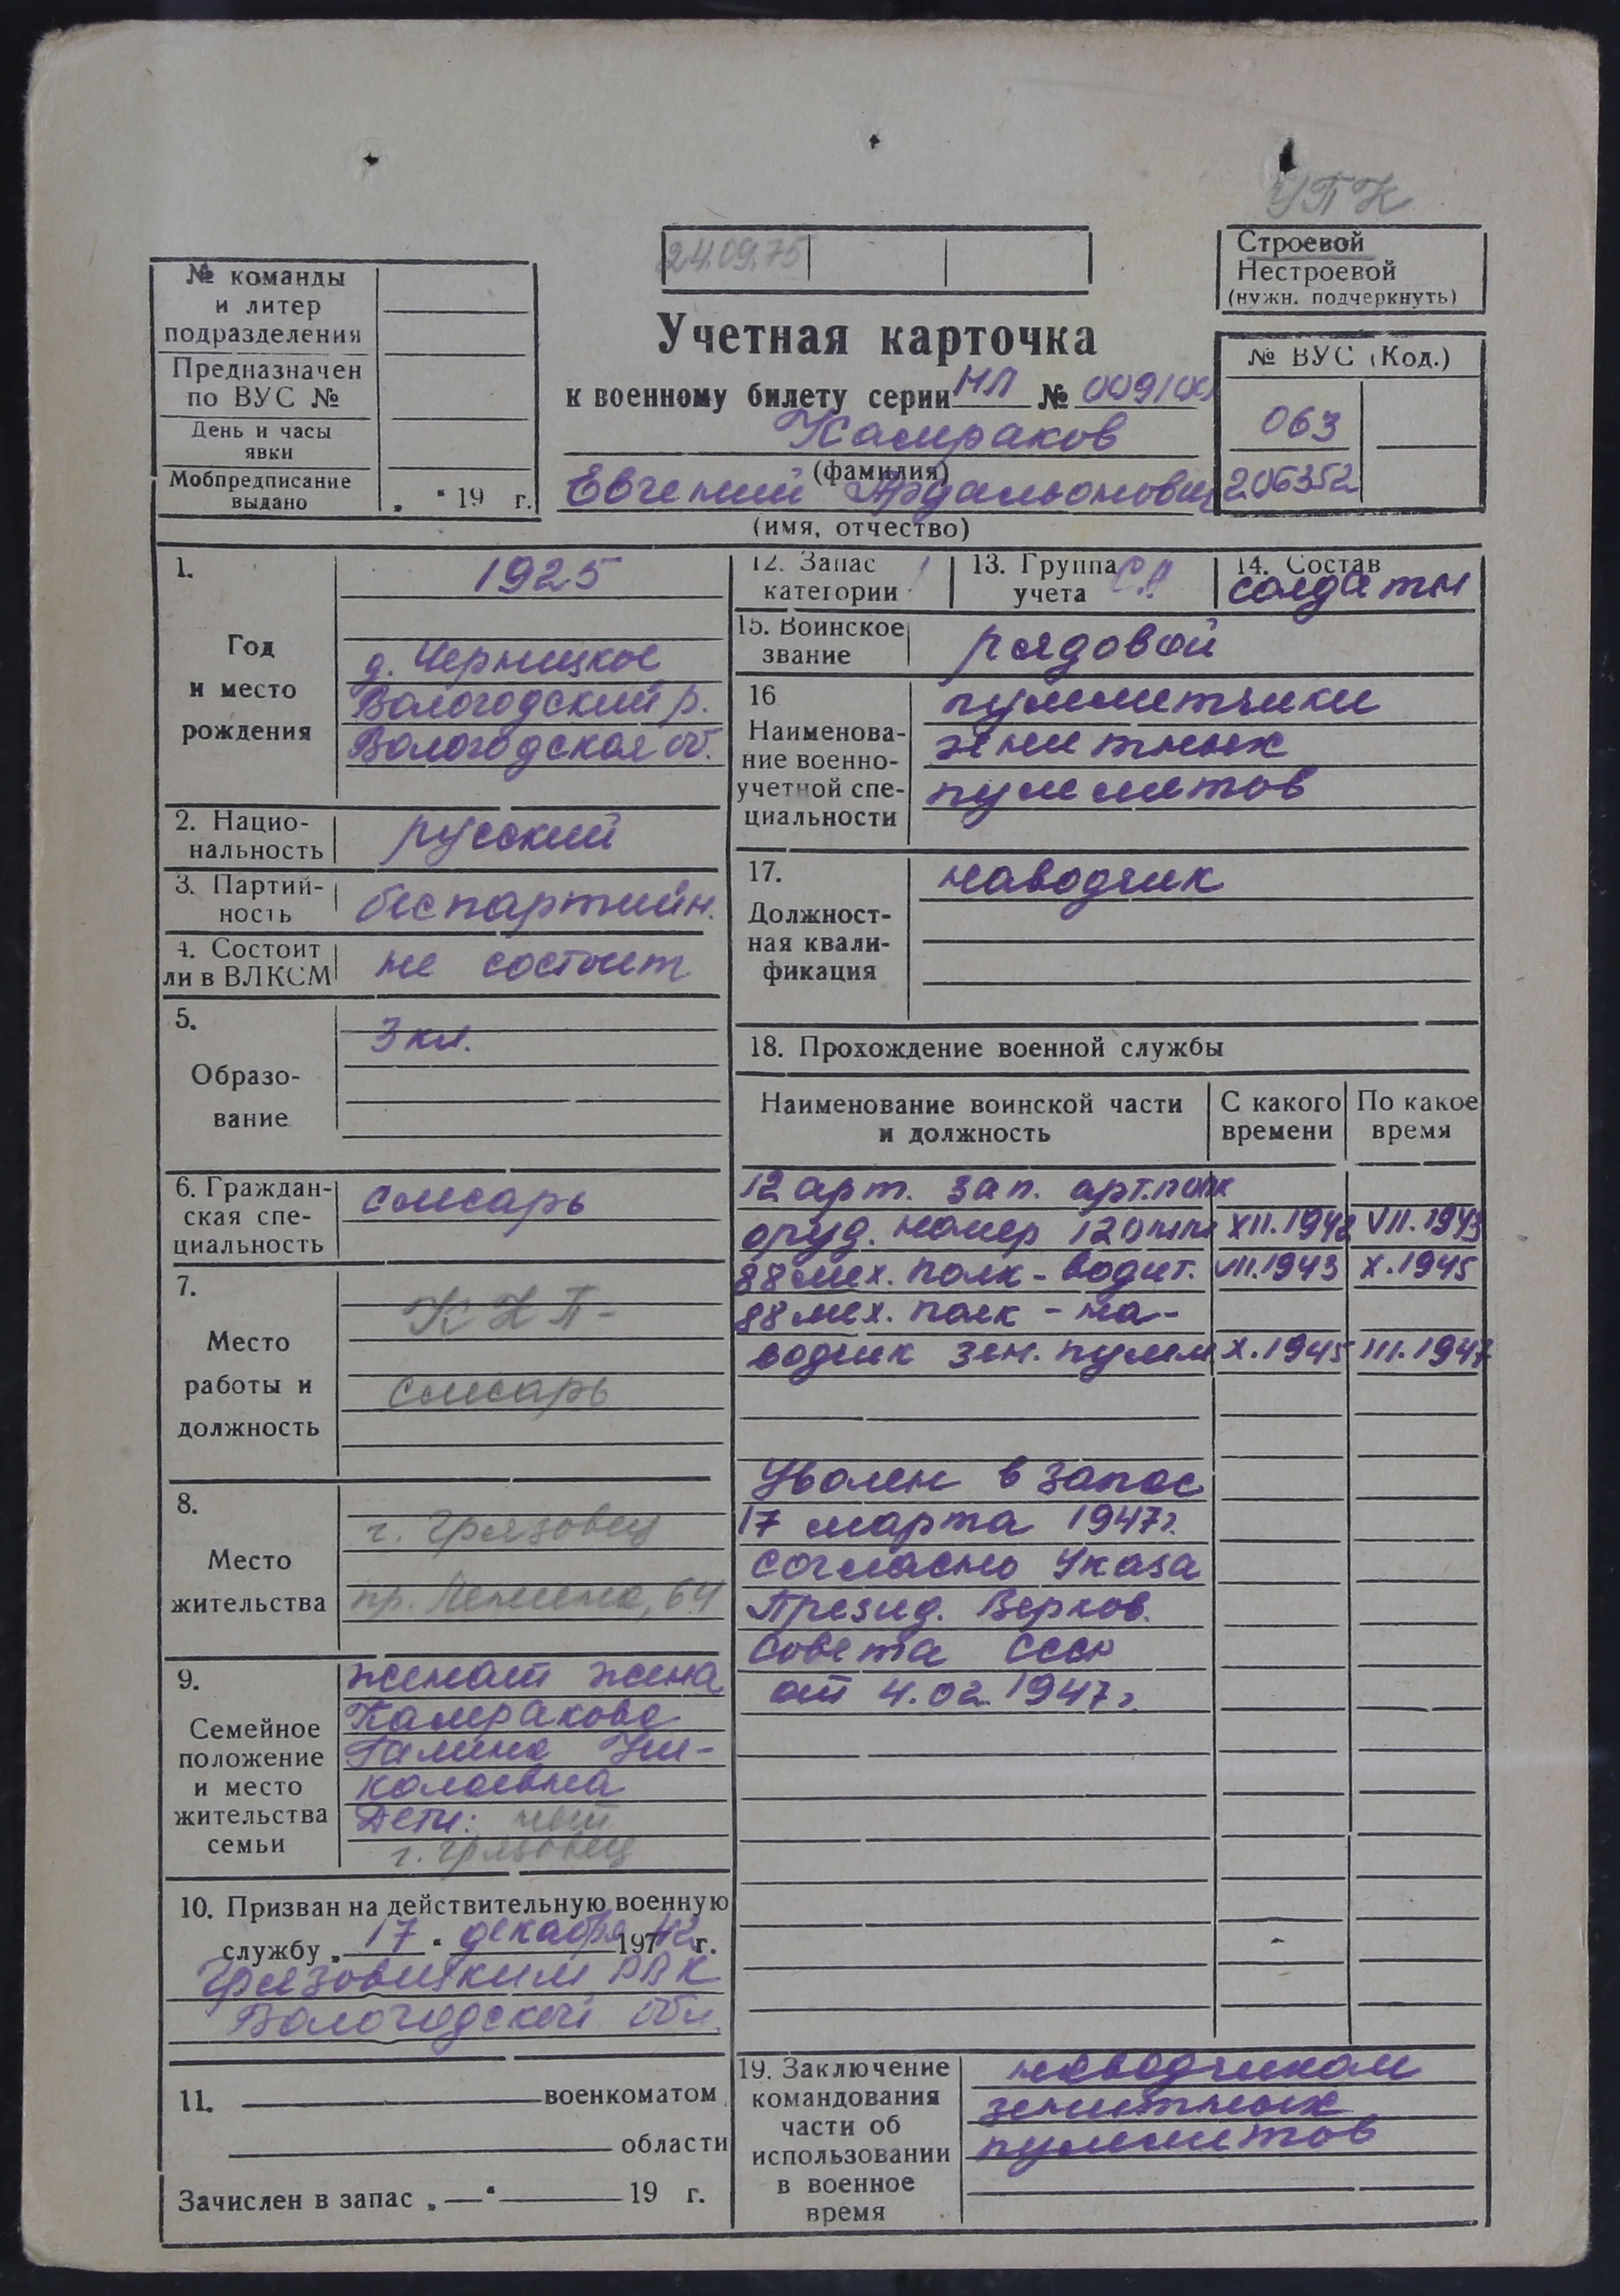 УПК
24.09.75
Строевой
Нестроевой
(нужн. подчеркнуть)
№ команды
и литер
подразделения
Предназначен
по ВУС №
День и часы
явки
Мобпредписание
выдано
„ “ 19 г.
Учетная карточка
к военному билету серии НЛ №
Камраков
(фамилия)
Евгений Ардальонович
(имя, отчество)
№ ВУС (Код.)
063
206352
1.
Год
и место
рождения
1925
д. Черницкое
Вологодский р.
Вологодская об.
2. Нацио-
нальность
русский
3. Партий-
ность
беспартийн.
4. Состоит
ли в ВЛКСМ
не состоит
5.
Образо-
вание
3 кл.
6. Граждан-
ская спе-
циальность
слесарь
7.
Место
работы и
должность
слесарь
8.
Место
жительства
г. Грязовец
пр. Ленина, 64
9.
Семейное
положение
и место
жительства
семьи
женат жена
Камракова
Галина Ни-
колаевна
Дети: нет
г. Грязовец
10. Призван на действительную военную
службу „ 17 “ декабря 1942 г.
Грязовецким РВК
Вологодской обл.
11. военкоматом
области
Зачислен в запас „ — “ 19 г.
12. Запас
категории 1
13. Группа
учета СА
14. Состав
солдаты
15. Воинское
звание
рядовой
16
Наименова-
ние военно-
учетной спе-
циальности
пулеметчики
зенитных
пулеметов
17.
Должност-
ная квали-
фикация
наводчик
18. Прохождение военной службы
Наименование воинской части
и должность
С какого
времени
По какое
время
12 арт. зап. арт.полк
оруд. номер 120мм XII.1942 VII.1943
88 мех. полк - водит. VII.1943 X.1945
88 мех. полк - на-
водчик зен. пулем X.1945 III.1947
Уволен в запас
17 марта 1947г.
согласно Указа
Презид. Верхов.
Совета СССР
от 4.02.1947г.
19. Заключение
командования
части об
использовании
в военное
время
наводчиком
зенитных
пулеметов